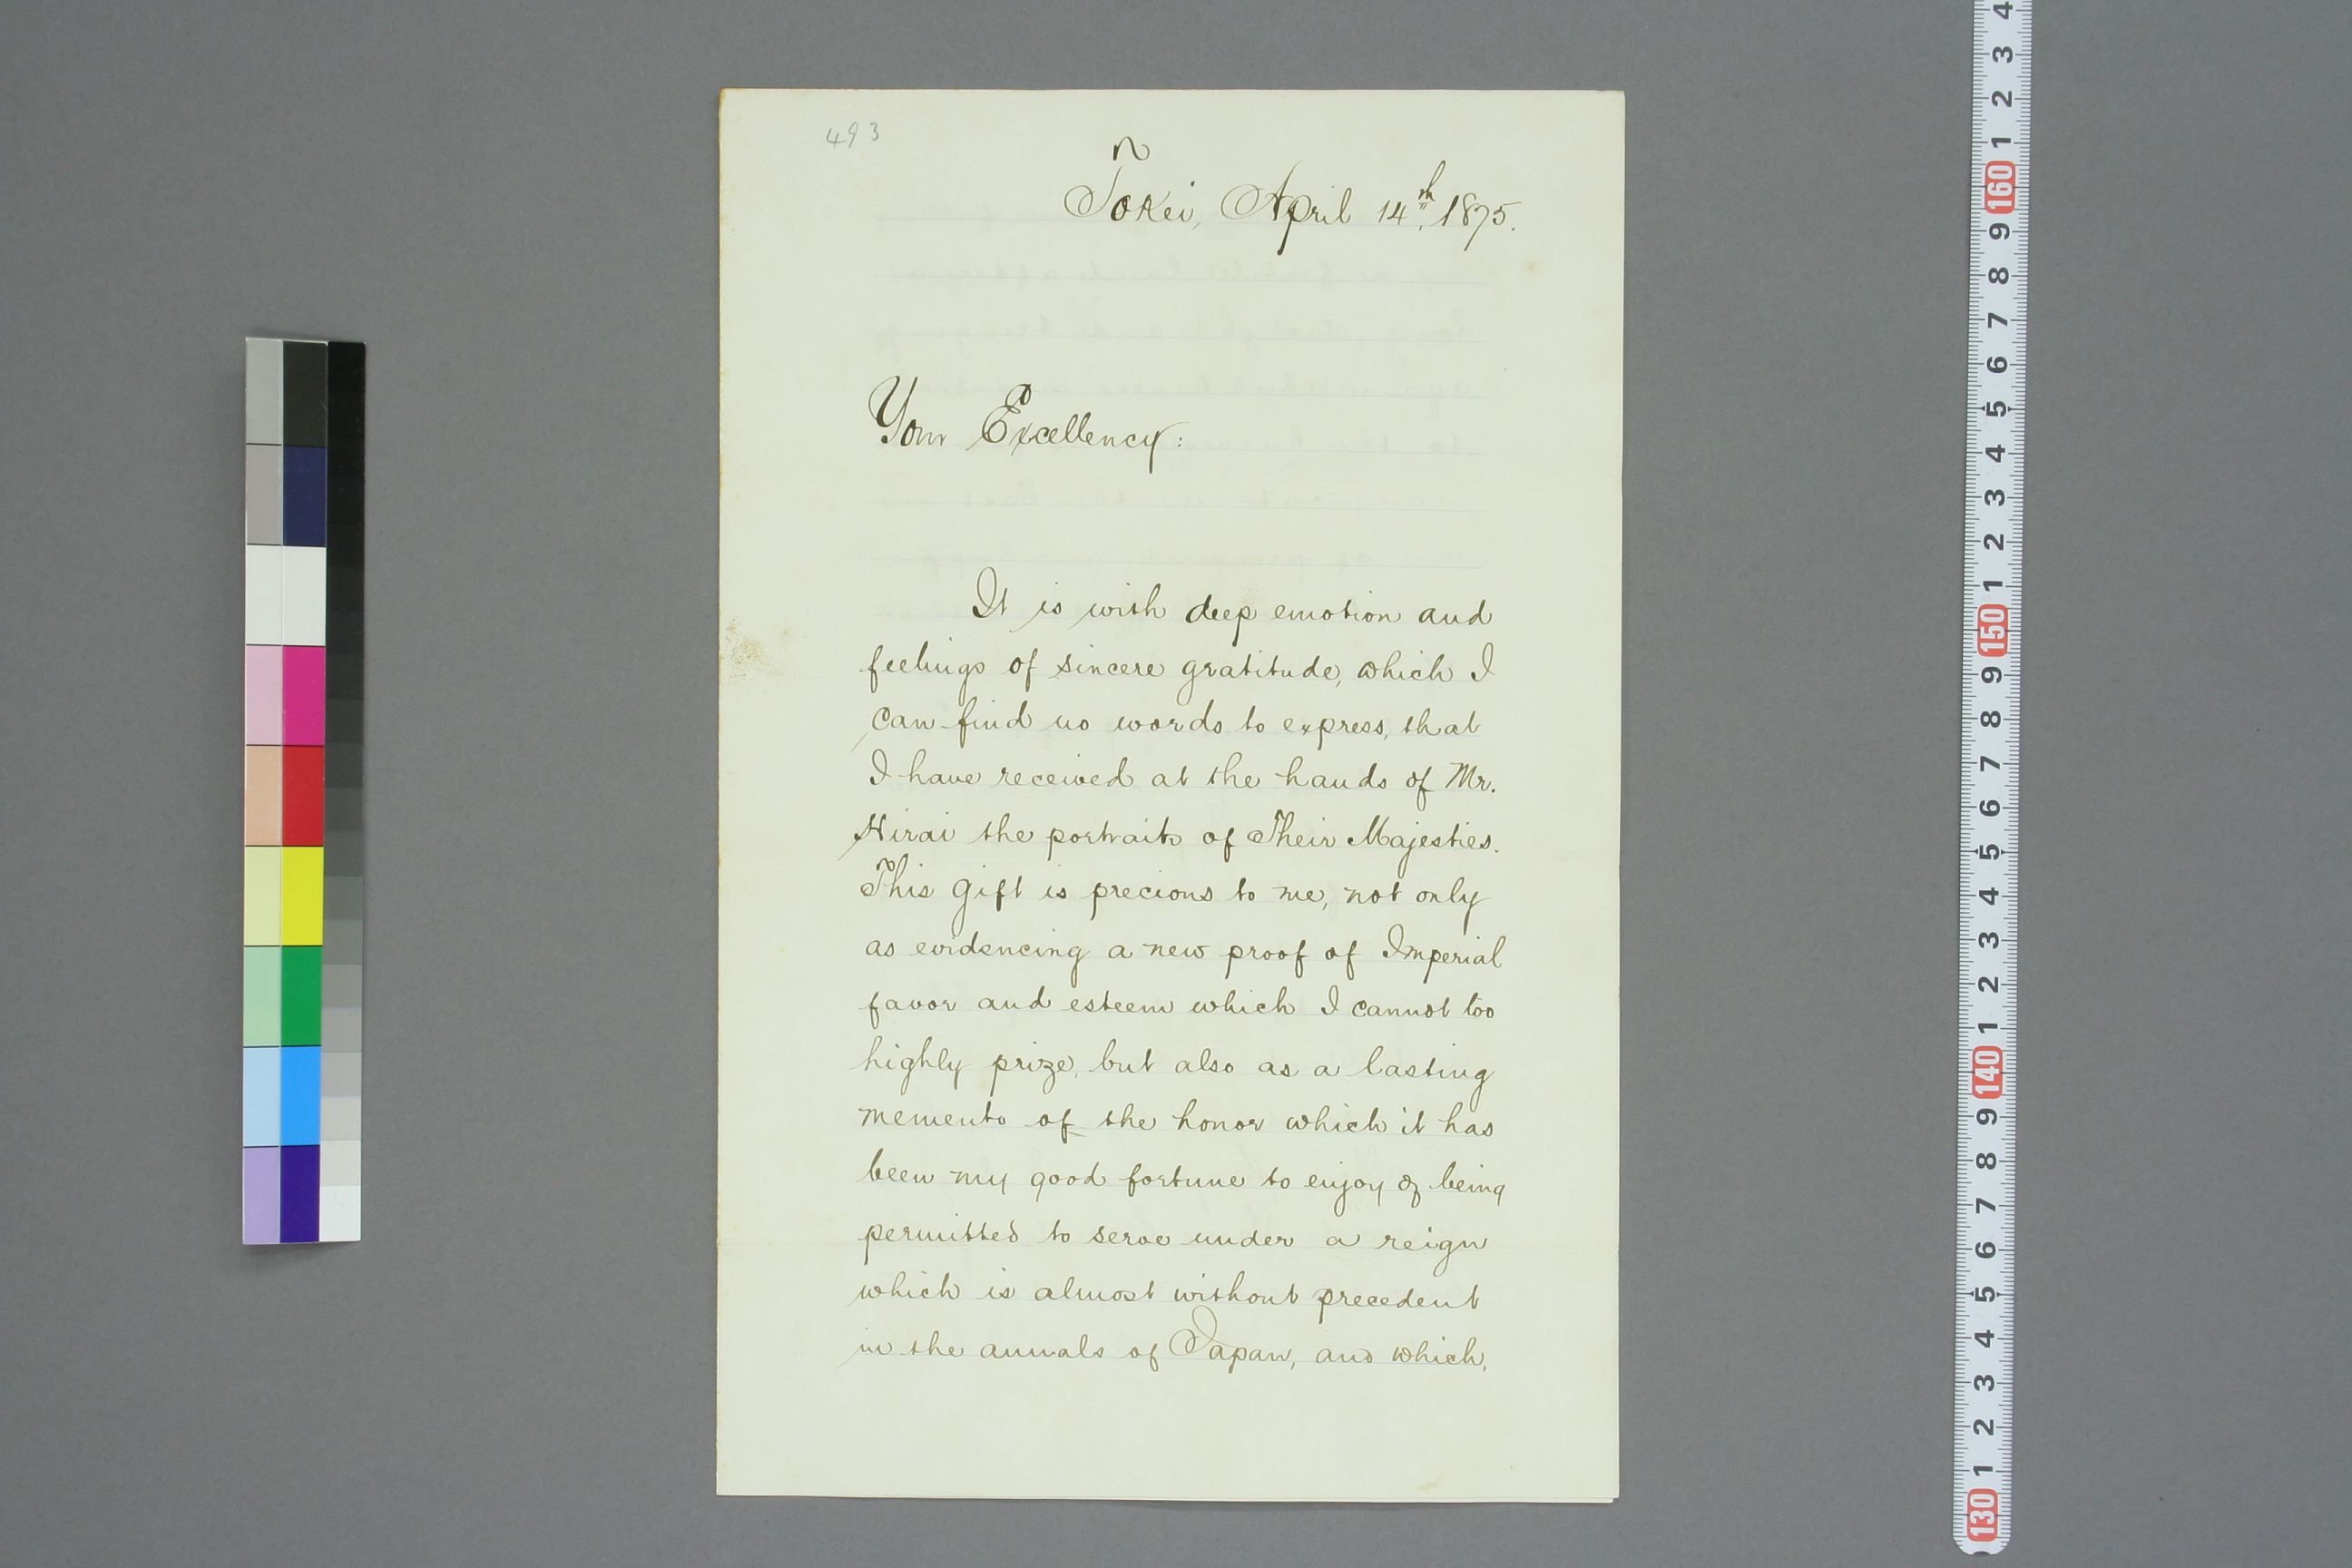 493
Tokei, April 14th, 1875.
Your Excellency:
It is with deep emotion and
feelings of sincere gratitude, which I
can find no words to express, that
I have received at the hands of Mr.
Hirai the portraits of Their Majesties.
This gift is precious to me, not only
as evidencing a new proof of Imperial
favor and esteem which I cannot too
highly prize, but also as a lasting
memento of the honor which it has
been my good fortune to enjoy of being
permitted to serve under a reign
which is almost without precedent
in the annals of Japan, and which,
4
3
2
1
160
9
8
7
6
5
4
3
2
1
150
9
8
7
6
5
4
3
2
1
140
9
8
7
6
5
4
3
2
1
130